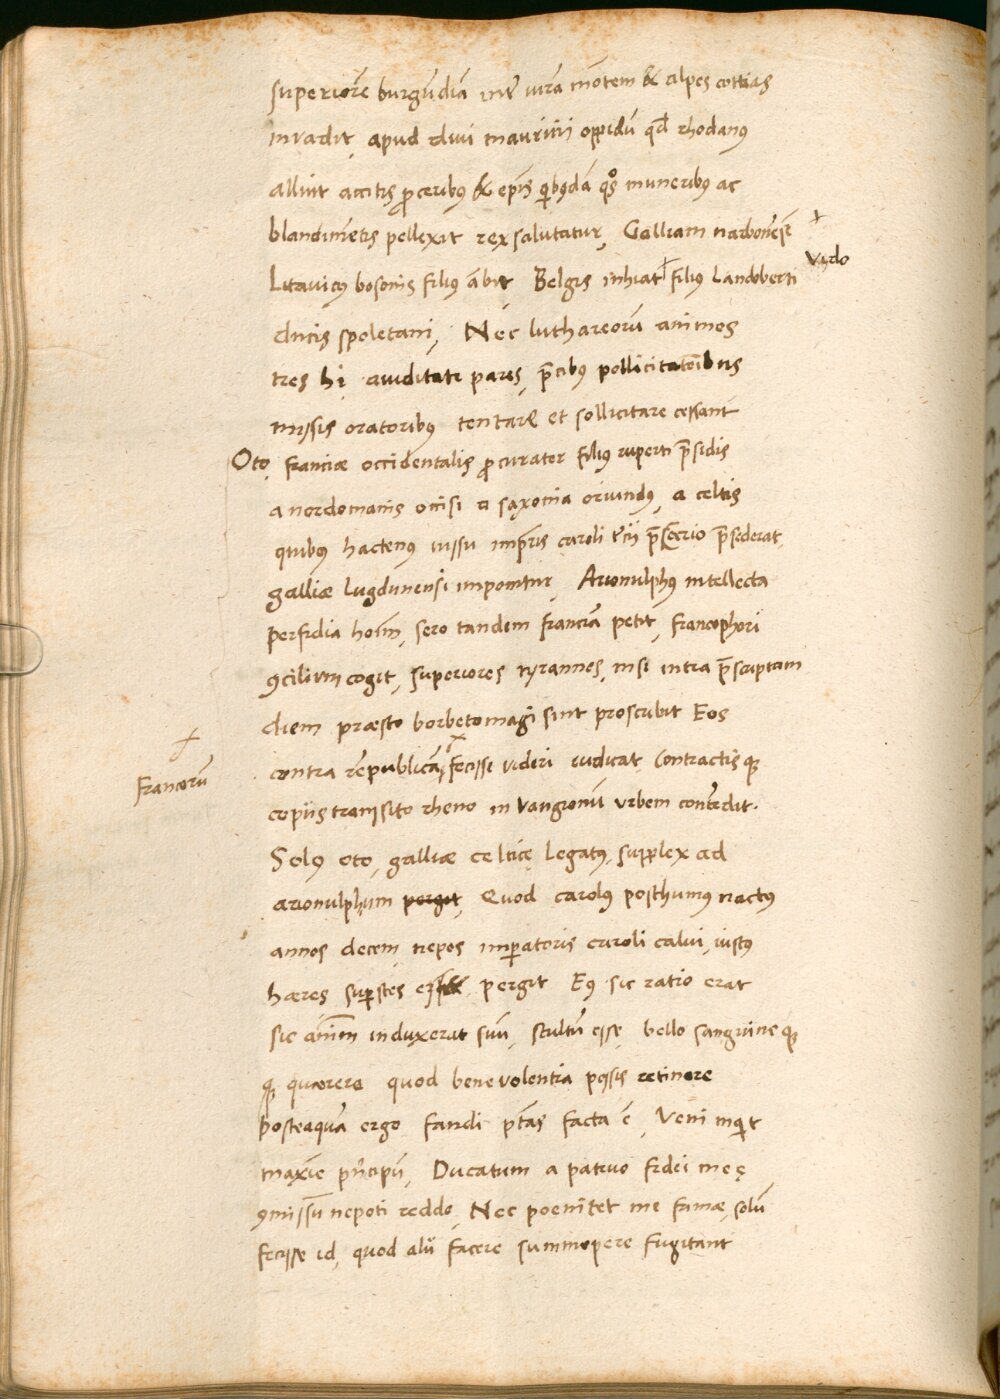 superiorē burgūdiā int̄ iurā mōtem & alpes cottias
inuadit, apud diui mauritii oppidū qd̄ rhodanus
alluit accitis proceribꝰ & ep̄is qibꝰdā qos muneribꝰ ac
blandimētis pellexit rex salutatur, Galliam narbonēsē
Litauicꝰ bosonis filiꝰ ābit, Belgis inhiat filiꝰ Landoberti
Vido
ducis spoletani, Nec luthareorū animos
tres hi auiditate pares, p̄cibꝰ pollicitatōibus
missis oratoribꝰ tentare et sollicitare cessant
Oto, franciæ occidentalis procurator filiꝰ ruperti p̄sidis
a nordomanis occisi a saxonia oriundꝰ, a celtis
quibꝰ hactenꝰ iussu imp̄ris caroli t̄cii p̄fectorio p̄sederat,
galliæ lugdunensi imponitur, Arionulphꝰ intellecta
perfidia hoīm, sero tandem franciā petit, francophori
ꝯcilium cogit, superiores tyrannos, nisi intra p̄scriptam
diem præsto borbetomagi sint proscribit Eos
contra rēpublicā, fecisse videri iudicat, Contractisqꝫ
francorū
copiis transito rheno in Vangionū vrbem contēdit.
Solꝰ oto, galliæ celticę legatꝰ, supplex ad
arionulphum pergit, Quod carolꝰ posthumꝰ nactꝰ
annos decem, nepos imperatoris caroli calui, iustꝰ
hæres superstes pergit Eꝰ sic ratio erat
sic animū induxerat suū, stultū esse, bello sanguineqꝫ
qꝫ quærere quod beneuolentia possis retinere
posteaquā ergo fandi p̄tas facta ē, Veni inquit
maxīe p̄ncipū, Ducatum a patruo fidei meę
ꝯmissū nepoti reddo, Nec poenitet me famæ, solū
fecisse id, quod alii facere summopere fugitant